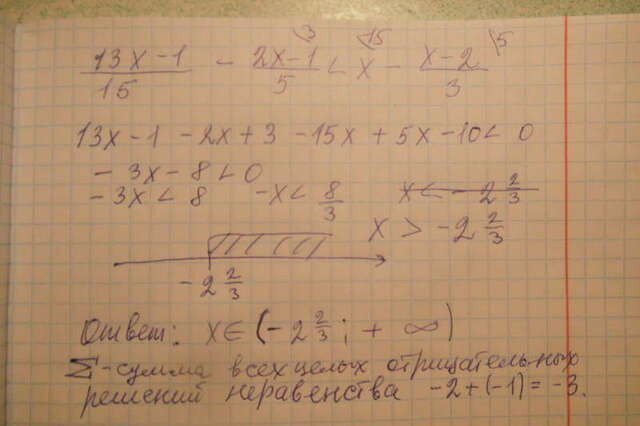 (13x-1)/15 - (2x-1)/5 \3 < x \15 - (x-2)/3 \5
13x-1 -2x+3 -15x+5x-10<0
-3x-8<0
-3x<8 -x<8/3 x<-2 2/3
x>-2 2/3
-2 2/3
Ответ: x∈(-2 2/3; +∞)
Σ-сумма всех целых отрицательных
решений неравенства -2+(-1)=-3.